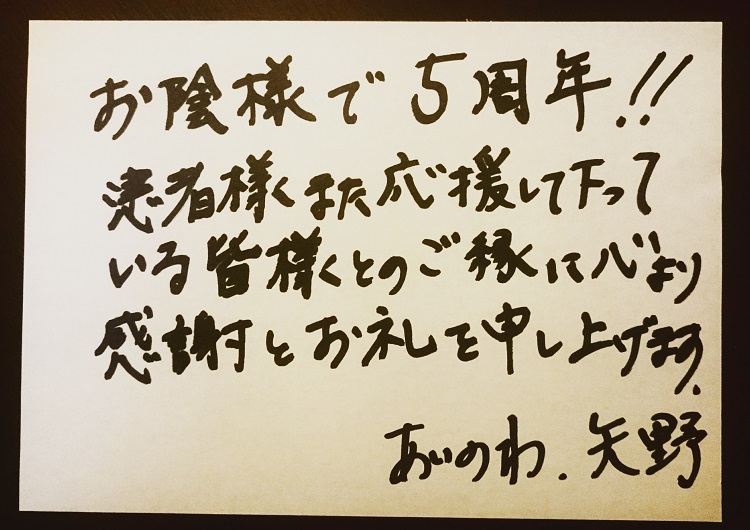 お陰様で5周年!!
患者様くまた応援して下って
いる皆様くとのご縁に心より
感謝とお礼を申し上げます.
あいのわ.矢野